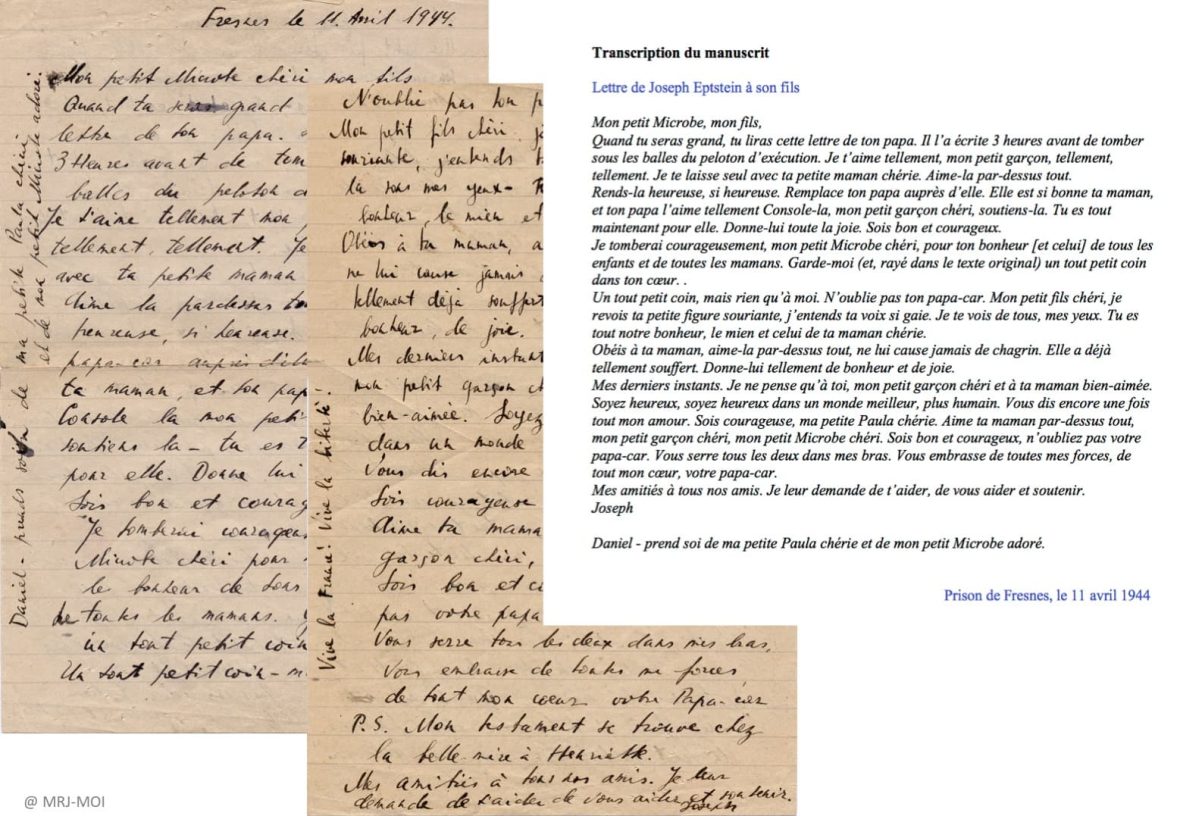 Fresnes le 11. Avril 1944.
Mon petit Microbe chéri mon fils
Quand tu seras grand
lettre de ton papa.
3 Heures avant de tom
balles du peloton d
Je t'aime tellement mon
tellement, tellement. Je
avec ta petite maman
Aime la pardessus to
heureuse, si heureuse.
papa-car auprès d'elle
ta maman, et ton pap
Console la mon petit
soutiens la - tu es t
pour elle. Donne lui
Sois bon et courag
Je tomberai courageus
Microbe chéri pour
le bonheur de tous
de toutes les mamans.
un tout petit coin
Un tout petit coin - m
Daniel - prends soin de ma petite Paula chérie
et de mon petit Microbe adoré.
N'oublie pas ton p
Mon petit fils chéri, j
souriante, j'entends t
la sous mes yeux - T
bonheur, le mien et
Obéis à ta maman, a
ne lui cause jamais
tellement déjà souffert
bonheur, de joie.
Mes derniers instant
mon petit garçon ch
bien-aimée. Soyez
dans un monde
Vous dis encore
Sois courageuse
Aime ta mama
garçon chéri,
Sois bon et c
pas votre papa
Vous serre tous les deux dans mes bras,
Vous embrasse de toutes me forces,
de tout mon coeur votre Papa-car
P.S. Mon testament se trouve chez
la belle-mère à Henriette.
Mes amitiés à tous nos amis. Je leur
demande de t'aider de vous aider et soutenir.
Joseph
Vive la France! Vive la liberté!
Transcription du manuscrit
Lettre de Joseph Eptstein à son fils
Mon petit Microbe, mon fils,
Quand tu seras grand, tu liras cette lettre de ton papa. Il l’a écrite 3 heures avant de tomber
sous les balles du peloton d’exécution. Je t’aime tellement, mon petit garçon, tellement,
tellement. Je te laisse seul avec ta petite maman chérie. Aime-la par-dessus tout.
Rends-la heureuse, si heureuse. Remplace ton papa auprès d’elle. Elle est si bonne ta maman,
et ton papa l’aime tellement Console-la, mon petit garçon chéri, soutiens-la. Tu es tout
maintenant pour elle. Donne-lui toute la joie. Sois bon et courageux.
Je tomberai courageusement, mon petit Microbe chéri, pour ton bonheur [et celui] de tous les
enfants et de toutes les mamans. Garde-moi (et, rayé dans le texte original) un tout petit coin
dans ton cœur. .
Un tout petit coin, mais rien qu’à moi. N’oublie pas ton papa-car. Mon petit fils chéri, je
revois ta petite figure souriante, j’entends ta voix si gaie. Je te vois de tous, mes yeux. Tu es
tout notre bonheur, le mien et celui de ta maman chérie.
Obéis à ta maman, aime-la par-dessus tout, ne lui cause jamais de chagrin. Elle a déjà
tellement souffert. Donne-lui tellement de bonheur et de joie.
Mes derniers instants. Je ne pense qu’à toi, mon petit garçon chéri et à ta maman bien-aimée.
Soyez heureux, soyez heureux dans un monde meilleur, plus humain. Vous dis encore une fois
tout mon amour. Sois courageuse, ma petite Paula chérie. Aime ta maman par-dessus tout,
mon petit garçon chéri, mon petit Microbe chéri. Sois bon et courageux, n’oubliez pas votre
papa-car. Vous serre tous les deux dans mes bras. Vous embrasse de toutes mes forces, de
tout mon cœur, votre papa-car.
Mes amitiés à tous nos amis. Je leur demande de t’aider, de vous aider et soutenir.
Joseph
Daniel - prend soi de ma petite Paula chérie et de mon petit Microbe adoré.
Prison de Fresnes, le 11 avril 1944
@ MRJ-MOI